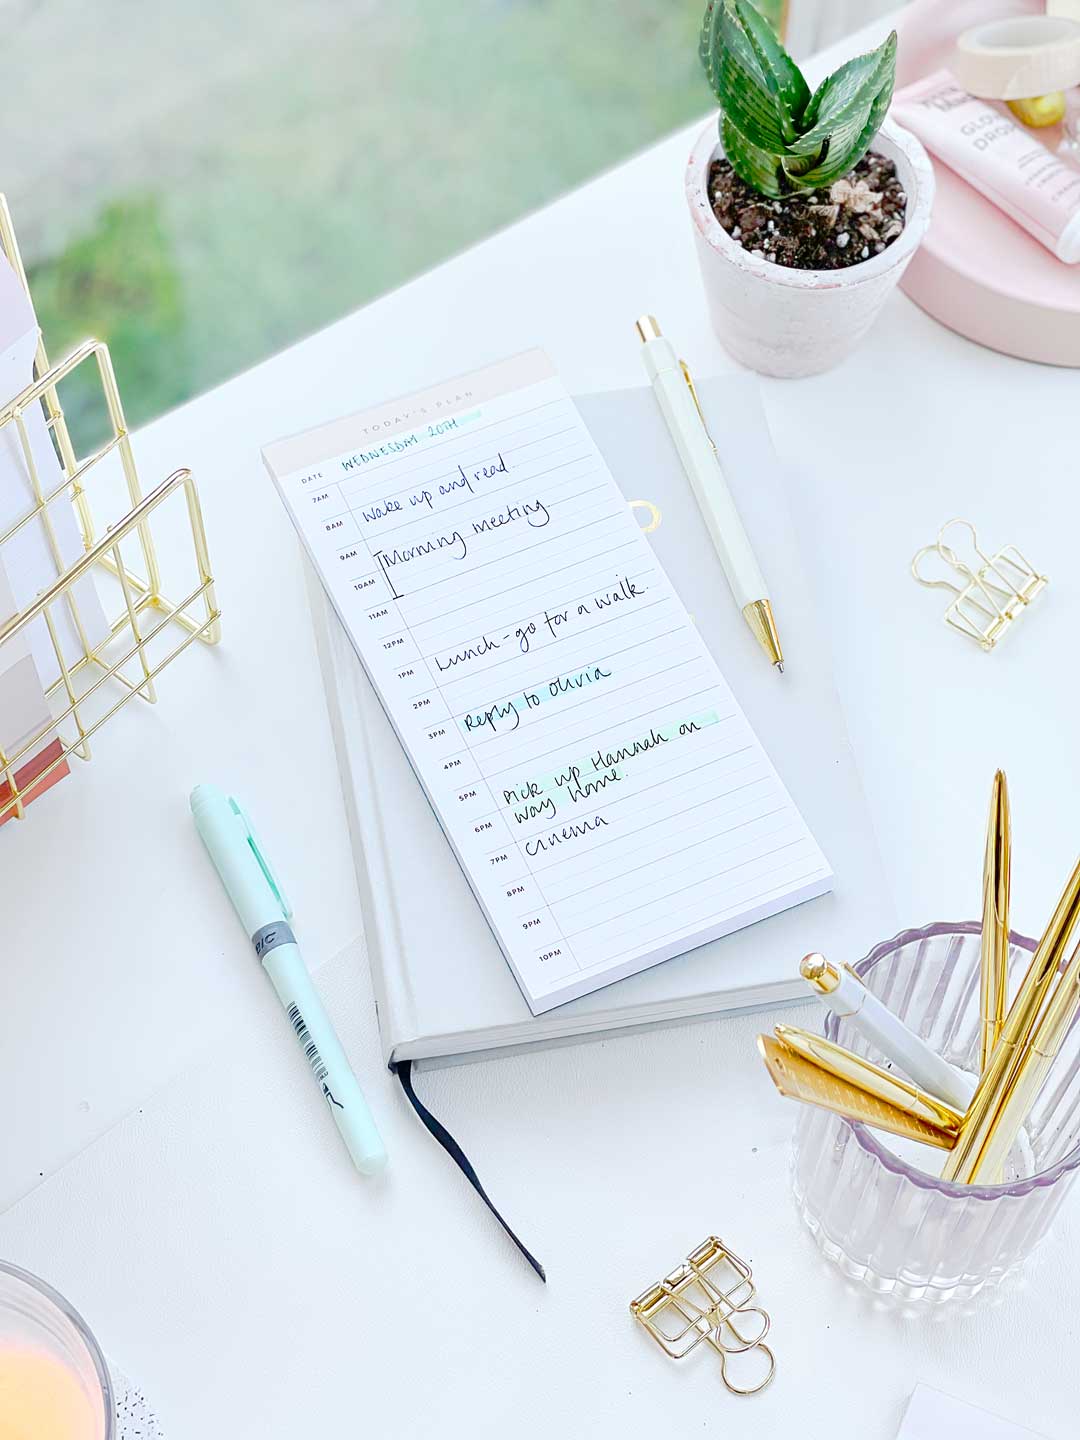 TODAY'S PLAN
DATE WEDNESDAY 20TH
7AM
wake up and read.
8AM
9AM Morning meeting
10AM
11AM
12PM
1PM Lunch - go for a walk.
2PM
3PM Reply to Olivia
4PM
5PM Pick up Hannah on
way home.
6PM
7PM cinema
8PM
9PM
10PM
BIC
GLOW
DROPS